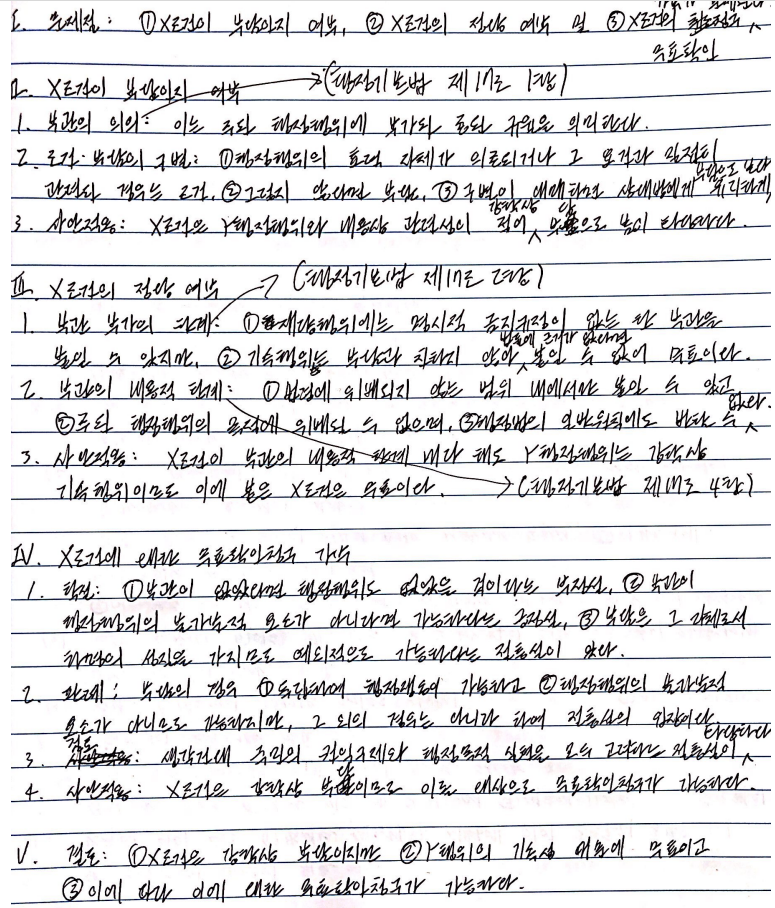 I. 문제점: ① X조건이 부담인지 여부, ② X조건의 정당 여부 및 ③ X조건의
무효확인
II. X조건이 부담인지 여부 → (행정기본법 제17조 1항)
1. 부관의 의의: 이는 주된 행정행위에 부가된 종된 규율을 의미한다.
2. 조건·부담의 구별: ① 행정행위의 효력 자체가 의존되거나 그 요건과 밀접히
관련된 경우는 조건, ② 그렇지 않다면 부담, ③ 구별이 애매하면 상대방에게 유리하게 부담으로 본다
3. 사안적용: X조건은 Y행정행위와 내용상 관련성이 적어 강학상 부담으로 봄이 타당하다.
III. X조건의 정당 여부 → (행정기본법 제17조 2항)
1. 부관 부가의 한계: ① 재량행위에는 명시적 금지규정이 없는 한 부관을
붙일 수 있지만, ② 기속행위는 부담과 친하지 않아 법률에 근거가 없다면 붙일 수 없어 무효이다.
2. 부관의 내용적 한계: ① 법령에 위배되지 않는 범위 내에서만 붙일 수 있고
② 주된 행정행위의 목적에 위배될 수 없으며, ③ 행정법의 일반원칙에도 반할 수 없다.
3. 사안적용: X조건이 부관의 내용적 한계 내라 해도 Y행정행위는 강학상
기속행위이므로 이에 붙은 X조건은 무효이다. → (행정기본법 제17조 4항)
IV. X조건에 대한 무효확인청구 가부
1. 학설: ① 부관이 없었다면 행정행위도 없었을 것이라는 부정설, ② 부관이
행정행위의 불가분적 요소가 아니라면 가능하다는 긍정설, ③ 부담은 그 자체로서
하명의 성질을 가지므로 예외적으로 가능하다는 절충설이 있다.
2. 판례: 부담의 경우 ① 독립하여 행정쟁송이 가능하고 ② 행정행위의 불가분적
요소가 아니므로 가능하지만, 그 외의 경우는 아니라 하여 절충설의 입장이다.
3. 검토: 생각건대 국민의 권익구제와 행정목적 실현을 모두 고려하는 절충설이 타당하다
4. 사안적용: X조건은 강학상 부담이므로 이를 대상으로 무효확인청구가 가능하다.
V. 결론: ① X조건은 강학상 부담이지만 ② Y행위의 기속성 때문에 무효이고
③ 이에 따라 이에 대한 무효확인청구가 가능하다.